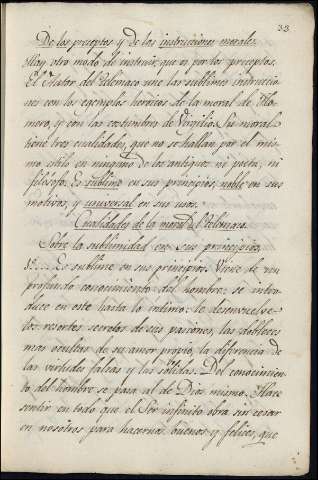 33
De los preceptos y de las instrucciones morales.
Hay otro modo de instruir, que es por los preceptos.
El Autor del Telémaco une las sublimes instruccio
nes con los egemplos heroicos de la moral de Ho
mero, y con las costumbres de Virgilio. Su moral
tiene tres cualidades, que no se hallan por el mis
mo estilo en ninguno de los antiguos, ni poeta, ni
filósofo. Es sublime en sus principios, noble en sus
motivos, y universal en sus usos.
Cualidades de la moral del Telémaco.
Sobre la sublimidad en sus principios.
1º.... Es sublime en sus principios. Viene de un
profundo conocimiento del hombre: se intro
duce en este hasta lo íntimo: le desenvuelve
los resortes secretos de sus pasiones, las dobleces
mas ocultas de su amor propio, la diferencia de
las virtudes falsas y las sólidas. Del conocimien
to del hombre se pasa al de Dios mismo. Hace
sentir en todo que el Ser infinito obra sin cesar
en nosotros para hacernos buenos y felices, que